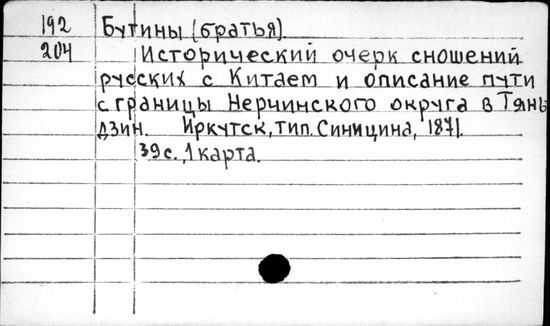 192 Бутины (братья)
204 Исторический очерк сношений
русских с Китаем и описание пути
с границы Нерчинского округа в Тянь
дзин. Иркутск, тип. Синицина, 1871.
39 с., 1 карта.